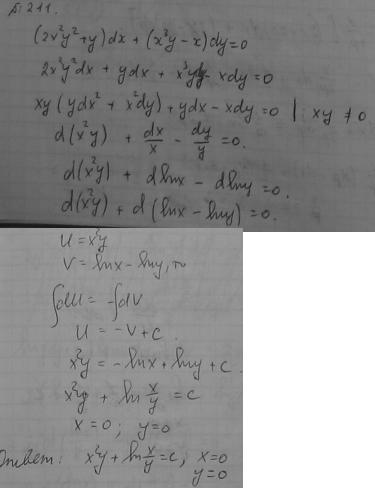 № 211.
(2x²y²+y)dx + (x³y-x)dy=0
2x²y²dx + ydx + x³ydy - xdy=0
xy(ydx² + x²dy)+ydx-xdy=0 | : xy ≠0
d(x²y) + dx/x - dy/y =0.
d(x²y) + dlnx - dlny =0.
d(x²y) + d(lnx-lny)=0.
U=x²y
V= lnx-lny, то
∫dU= -∫dV
U = -V+C.
x²y = -lnx+lny+C.
x²y + ln x/y = C
x=0; y=0
Ответ: x²y+ln x/y=C; x=0
y=0